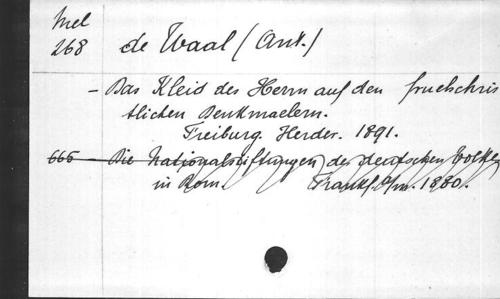 Mel
268 de Waal (Ant.)
- Das Kleid des Herrn auf den fruehchris
tlichen Denkmaelern.
Freiburg. Herder. 1891.
665 - Die Nationalstiftungen des deutschen Volkes
in Rom. Frankf. a/m. 1880.